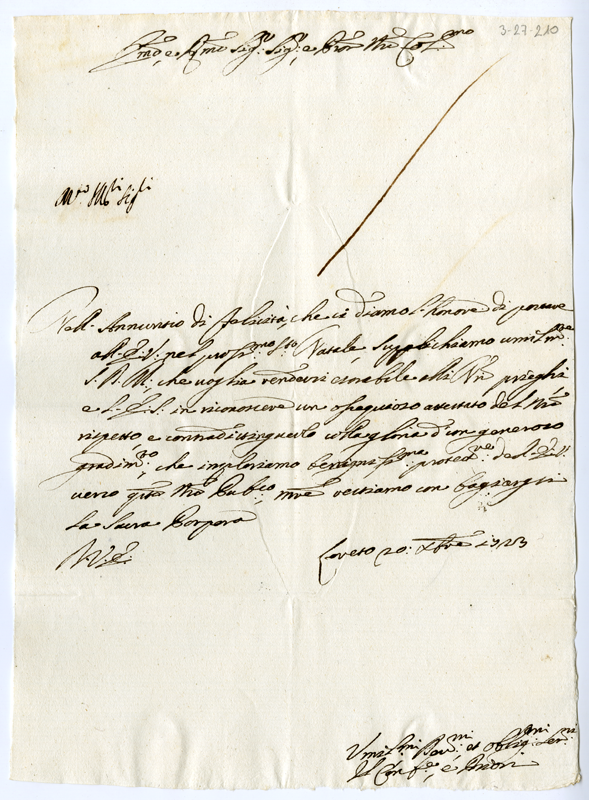 3-27-210
Em̃o e Rm̃o Sig.r Sig.r e Pron Nr̃o Col.mo
Nell' Annuntio di felicità, che ci diamo l'honore di portare
all' E. V. nel pross.mo S.to Natale, supplichiamo umilm.te
S. D. M., che voglia rendersi esorabile alli Nr̃i prieghi
e l' E. S. in riconoscere un ossequioso attestato del Nr̃o
rispetto e contradistinguerlo colla gloria d'un generoso
gradim.to, che imploriamo benigniss.ma protett.ne dell' E. V.
verso q̃sto Nr̃o Publico, mr̃e restiamo con baciargli
la Sacra Porpora
D. V. E.
Loreto 20: Xbr̃e 1723
Umil.mi Dev.mi et oblig.mi Ser.ri
Il Conf.re e Priori